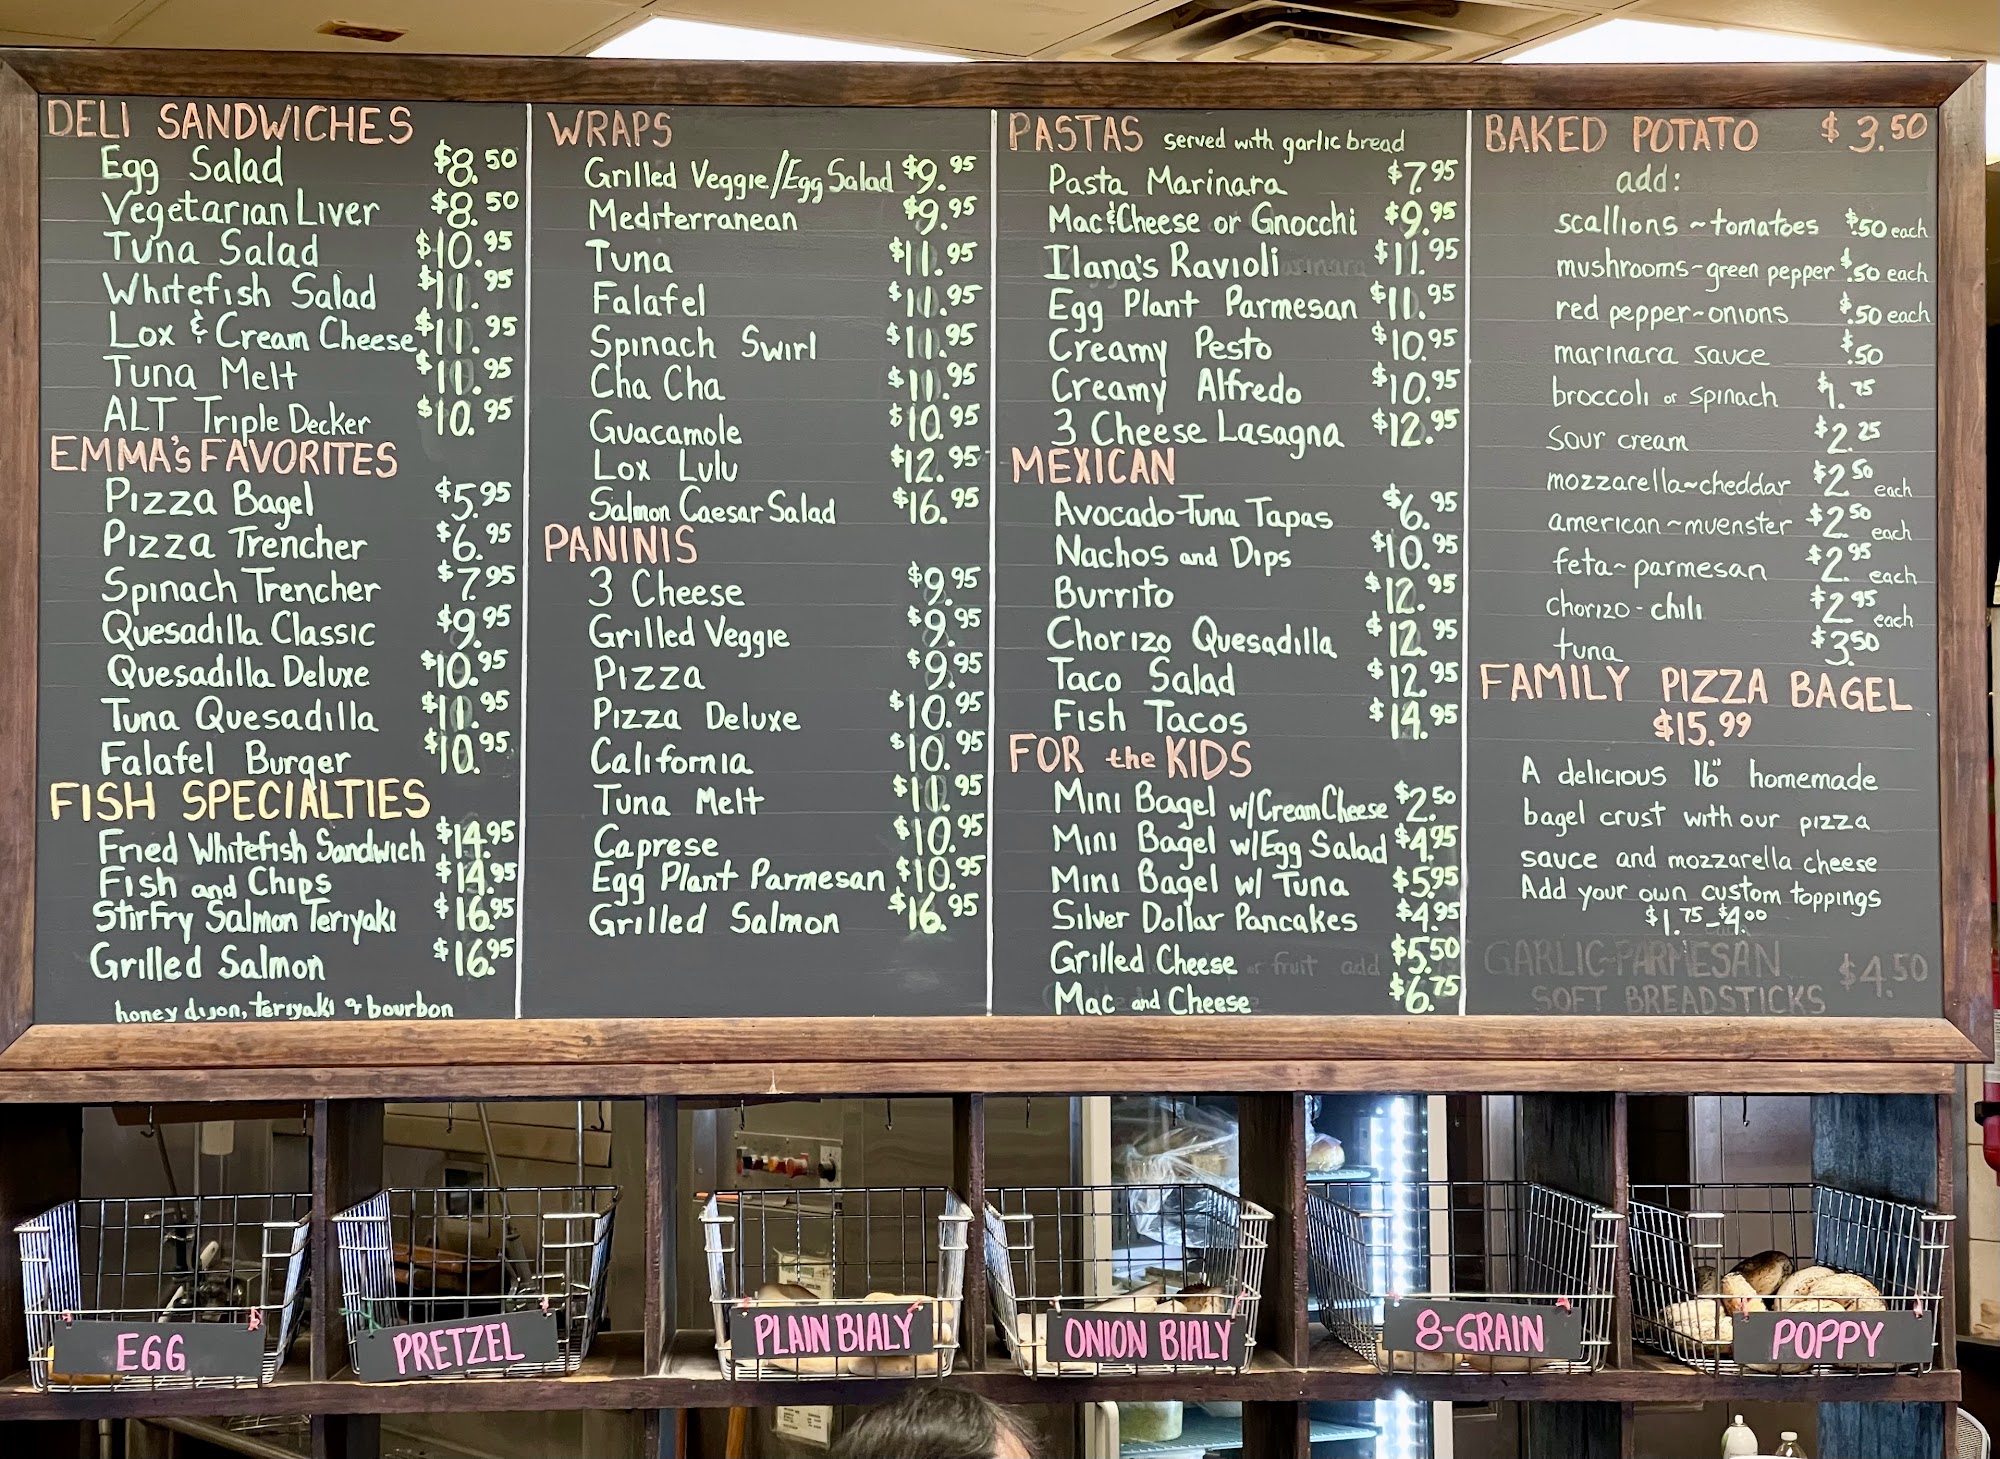 DELI SANDWICHES
Egg Salad $8.50
Vegetarian Liver $8.50
Tuna Salad $10.95
Whitefish Salad $11.95
Lox & Cream Cheese $11.95
Tuna Melt $11.95
ALT Triple Decker $10.95
EMMA's FAVORITES
Pizza Bagel $5.95
Pizza Trencher $6.95
Spinach Trencher $7.95
Quesadilla Classic $9.95
Quesadilla Deluxe $10.95
Tuna Quesadilla $11.95
Falafel Burger $10.95
FISH SPECIALTIES
Fried Whitefish Sandwich $14.95
Fish and Chips $14.95
Stirfry Salmon Teriyaki $16.95
Grilled Salmon $16.95
honey dijon, teriyaki or bourbon
WRAPS
Grilled Veggie/Egg Salad $9.95
Mediterranean $9.95
Tuna $11.95
Falafel $10.95
Spinach Swirl $11.95
Cha Cha $11.95
Guacamole $10.95
Lox Lulu $12.95
Salmon Caesar Salad $16.95
PANINIS
3 Cheese $9.95
Grilled Veggie $9.95
Pizza $9.95
Pizza Deluxe $10.95
California $10.95
Tuna Melt $11.95
Caprese $10.95
Egg Plant Parmesan $10.95
Grilled Salmon $16.95
PASTAS served with garlic bread
Pasta Marinara $7.95
Mac&Cheese or Gnocchi $9.95
Ilana's Ravioli $11.95
Egg Plant Parmesan $11.95
Creamy Pesto $10.95
Creamy Alfredo $10.95
3 Cheese Lasagna $12.95
MEXICAN
Avocado-Tuna Tapas $6.95
Nachos and Dips $10.95
Burrito $12.95
Chorizo Quesadilla $12.95
Taco Salad $12.95
Fish Tacos $14.95
FOR the KIDS
Mini Bagel w/Cream Cheese $2.50
Mini Bagel w/Egg Salad $4.95
Mini Bagel w/ Tuna $5.95
Silver Dollar Pancakes $4.95
Grilled Cheese $5.50
Mac and Cheese $6.75
BAKED POTATO $3.50
add:
scallions ~ tomatoes $.50 each
mushrooms ~ green pepper $.50 each
red pepper ~ onions $.50 each
marinara sauce $.50
broccoli or spinach $1.75
sour cream $2.25
mozzarella ~ cheddar $2.50 each
american ~ muenster $2.50 each
feta ~ parmesan $2.95 each
chorizo - chili $2.95 each
tuna $3.50
FAMILY PIZZA BAGEL
$15.99
A delicious 16" homemade
bagel crust with our pizza
sauce and mozzarella cheese
Add your own custom toppings
$1.75-$4.00
GARLIC-PARMESAN
SOFT BREADSTICKS $4.50
EGG
PRETZEL
PLAIN BIALY
ONION BIALY
8-GRAIN
POPPY